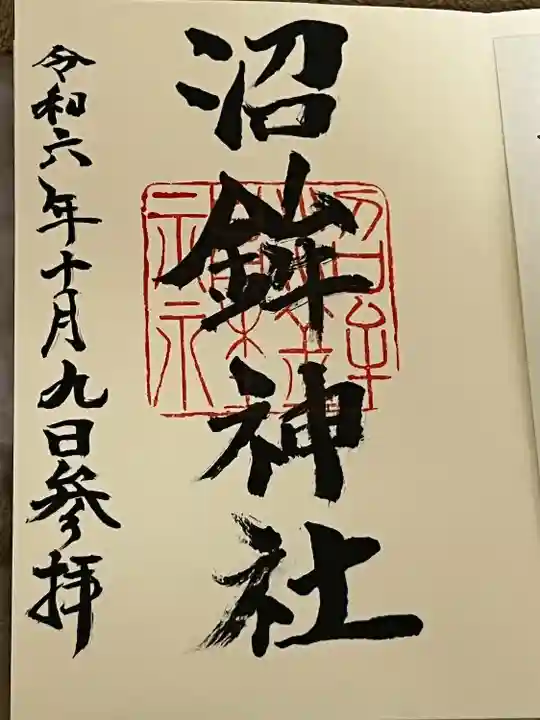 沼鉾神社
令和六年十月九日參拝